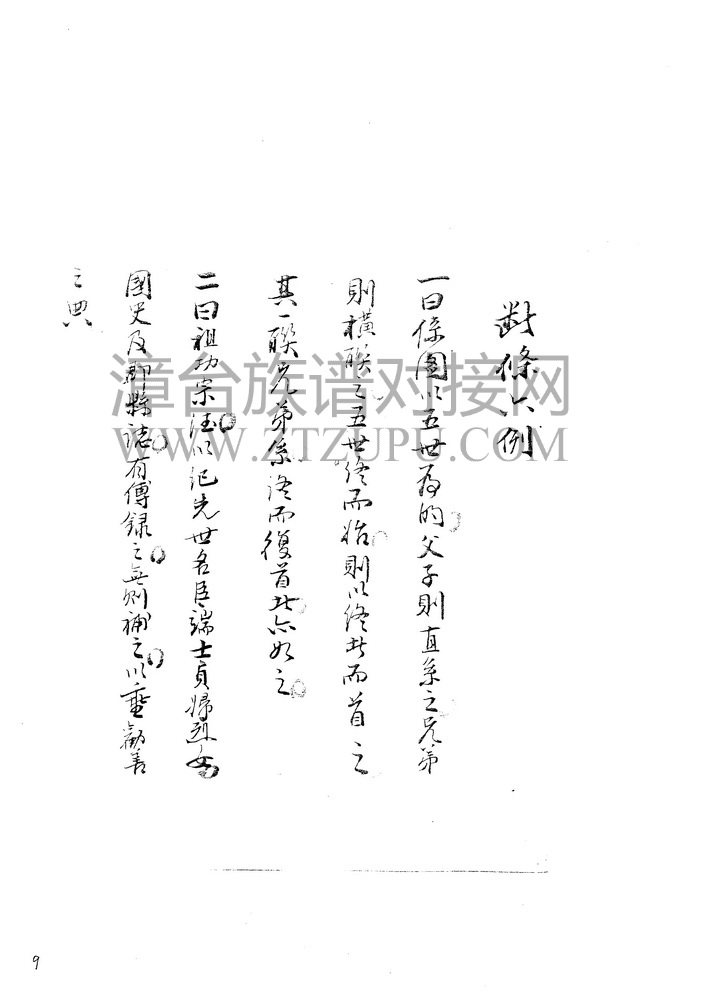 條六例
一曰係圖以五世為的父子則直系之兄弟
則橫聯之五世終而始則以終者而首之
其一聯兄弟系終而復首者亦如之
二曰祖功宗德以紀先世名臣端士貞婦烈女
國史及郡縣誌有傳錄之無則補之以垂勸善
之典
漳台族谱对接网
WWW.ZTZUPU.COM
9